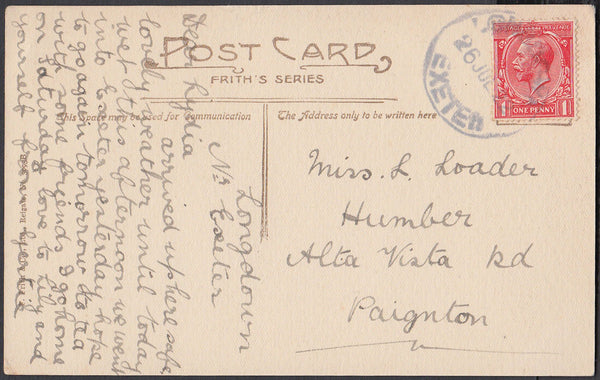 POST CARD
FRITH'S SERIES
This Space may be used for Communication
The Address only to be written here
Longdown
Nr Exeter
Dear Lydia
arrived up here safe
lovely weather until today
wet this afternoon we went
into Exeter yesterday hope
to go again tomorrow to tea
with some friends I go home
on Saturday love to Lily and
yourself from
Miss. L. Loader
Humber
Alta Vista Rd
Paignton
26 JU
EXETER
POSTAGE REVENUE
1 1
ONE PENNY
Reigate